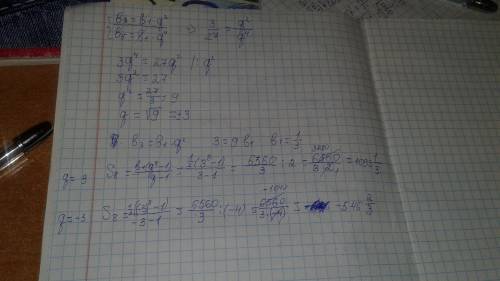 b₃ = b₁·q²
b₅ = b₁·q⁴ => 3/27 = q²/q⁴
3q⁴ = 27q² |: q²
3q² = 27
q² = 27/3 = 9
q = √9 = ±3
b₃ = b₁·q² 3 = 9b₁ b₁ = 1/3
q = 3 S₈ = b₁(q⁸-1)/q-1 = 1/3(3⁸-1)/3-1 = 6560/3 : 2 =
q = -3 S₈ = 1/3((-3)⁸-1)/-3-1 = 6560/3 : (-4) = = -546 2/3